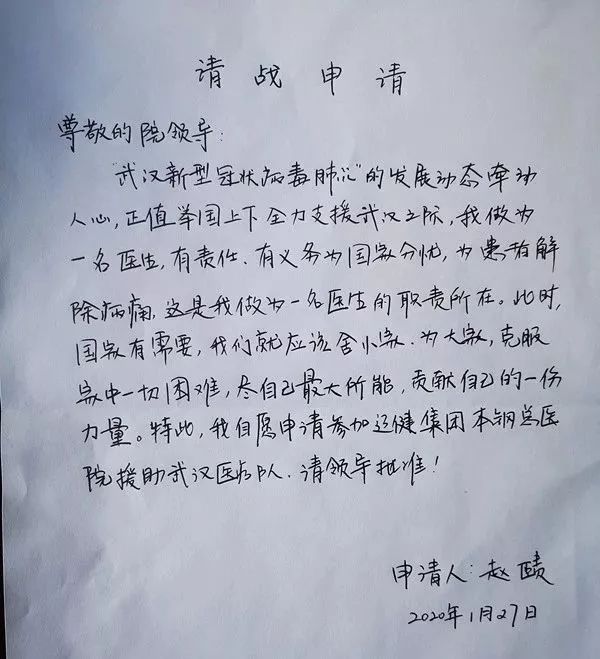 请战申请
尊敬的院领导:
“武汉新型冠状病毒肺炎”的发展动态牵动
人心,正值举国上下全力支援武汉之际,我做为
一名医生,有责任、有义务为国家分忧,为患者解
除病痛,这是我做为一名医生的职责所在。此时,
国家有需要,我们就应该舍小家、为大家,克服
家中一切困难,尽自己最大所能,贡献自己的一份
力量。特此,我自愿申请参加辽健集团本钢总医
院援助武汉医疗队、请领导批准!
申请人:赵赜
2020年1月27日